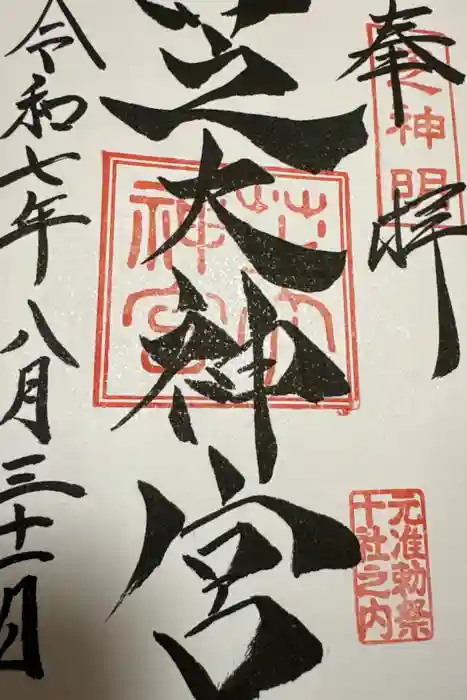 奉拝
芝神明
芝大神宮
芝大神宮
元准勅祭
十社之内
令和七年八月三十一日